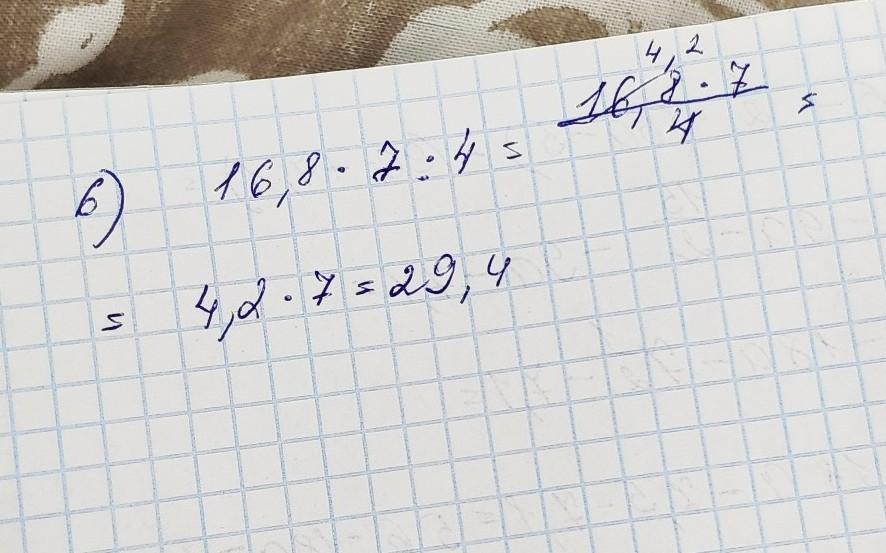 б) 16,8 · 7 : 4 = 16,8 · 7 / 4 =
4,2
= 4,2 · 7 = 29,4